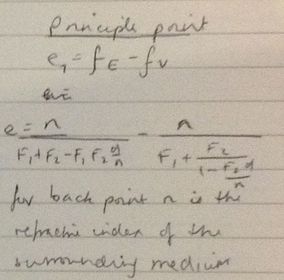 Principle point
e, = fE - fv
e = n / (F1 + F2 - F1 F2 d/n) - n / (F1 + F2 / (1 - F2 d/n))
for back point n is the
refractive index of the
surrounding medium